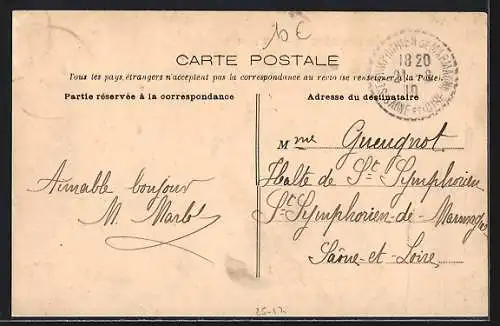 10 €
CARTE POSTALE
Tous les pays étrangers n'acceptent pas la correspondance au recto (se renseigner à la Poste).
Partie réservée à la correspondance
Adresse du destinataire
18 20
10
SAÔNE ET LOIRE
Mme Gueugnot
Halte de St Symphorien
St Symphorien-de-Marmagne
Saône-et-Loire
Aimable bonjour
M. Marlé
25-12